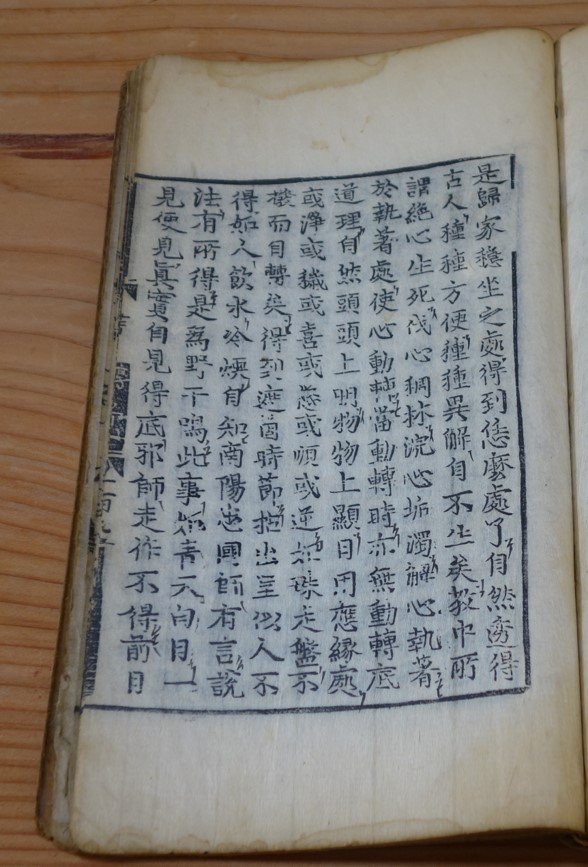 是歸家穩坐之處得到恁麽處了自然會得
古人種種方便種種異解自不生矣敎中所
謂絶心生死伐心稠林浣心垢濁解心執著
於執著處使心動轉當動轉時亦無動轉底
道理自然頭頭上明物物上顯日用應緣處
或淨或穢或喜或怒或順或逆如珠走盤不
撥而自轉矣得到這箇時節拈出呈似人不
得如人飮水冷煖自知南陽忠國師有言說
法有所得是爲野干鳴此事如靑天白日一
見便見眞實自見得底邪師走作不得前日